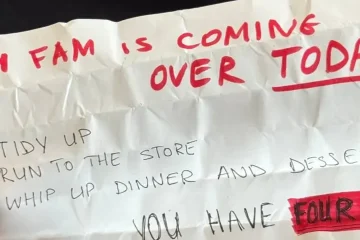 FAM IS COMING
OVER TODA
TIDY UP
RUN TO THE STORE
WHIP UP DINNER AND DESSE
YOU HAVE FOUR